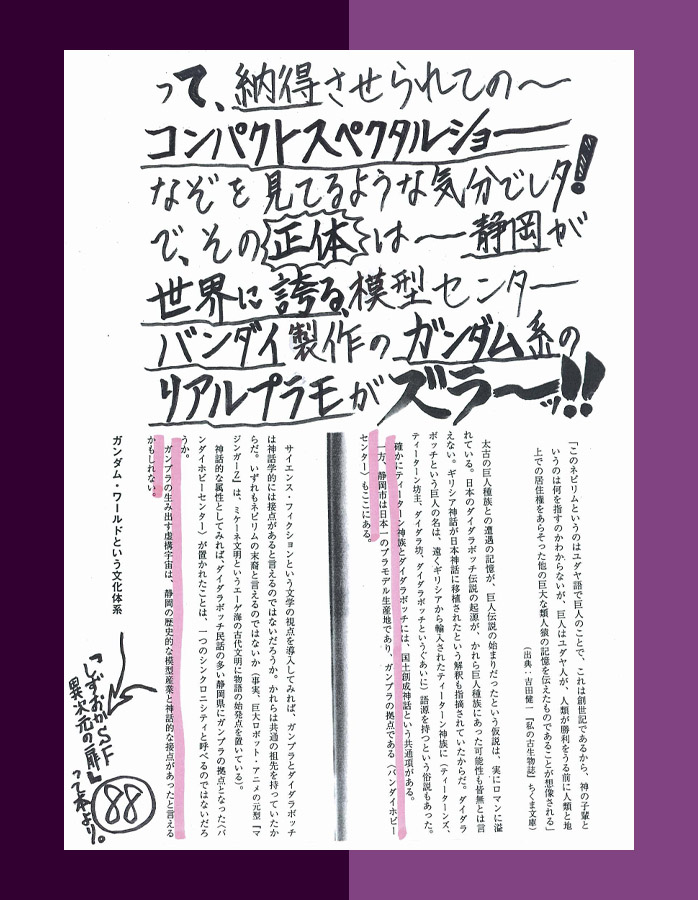 って、納得させられての〜
コンパクトスペクタルショー
なぞを見てるような気分でしタ!
で、その正体は〜静岡が
世界に誇る、模型センター
バンダイ製作のガンダム系の
リアルプラモがズラ〜ッ!!
「このネピリムというのはユダヤ語で巨人のことで、これは創世記であるから、神の子輩と
いうのは何を指すのかわからないが、巨人はユダヤ人が、人類が勝利をうる前に人類と地
上での居住権をあらそった他の巨大な類人猿の記憶を伝えたものであることが想像される」
(出典:吉田健一『私の古生物誌』ちくま文庫)
太古の巨人種族との遭遇の記憶が、巨人伝説の始まりだったという仮説は、実にロマンに溢
れている。日本のダイダラボッチ伝説の起源が、かれら巨人種族にあった可能性も皆無とは言
えない。ギリシア神話が日本神話に移植されたという解釈も指摘されていたからだ。ダイダラ
ボッチという巨人の名は、遠くギリシアから輸入されたティーターン神族に(ティーターンズ、
ティーターン坊主、ダイダラ坊、ダイダラボッチというぐあいに)語源を持つという俗説もあった。
確かにティーターン神族とダイダラボッチには、国土創成神話という共通項がある。
一方、静岡市は日本一のプラモデル生産地であり、ガンプラの拠点である〈バンダイホビー
センター〉もここにある。
サイエンス・フィクションという文学の視点を導入してみれば、ガンプラとダイダラボッチ
は神話学的には接点があると言えるのではないだろうか。かれらは共通の祖先を持っていたか
らだ。いずれもネピリムの末裔と言えるのではないか(事実、巨大ロボット・アニメの元型『マ
ジンガーZ』は、ミケーネ文明というエーゲ海の古代文明に物語の始発点を置いている)。
神話的な属性としてみれば、ダイダラボッチ民話の多い静岡県にガンプラの拠点となった〈バ
ンダイホビーセンター〉が置かれたことは、一つのシンクロニシティと呼べるのではないだろ
うか。
ガンプラの生み出す虚構宇宙は、静岡の歴史的な模型産業と神話的な接点があったと言える
かもしれない。
ガンダム・ワールドという文化体系
「しずおかSF
異次元の扉」
って本より。
88